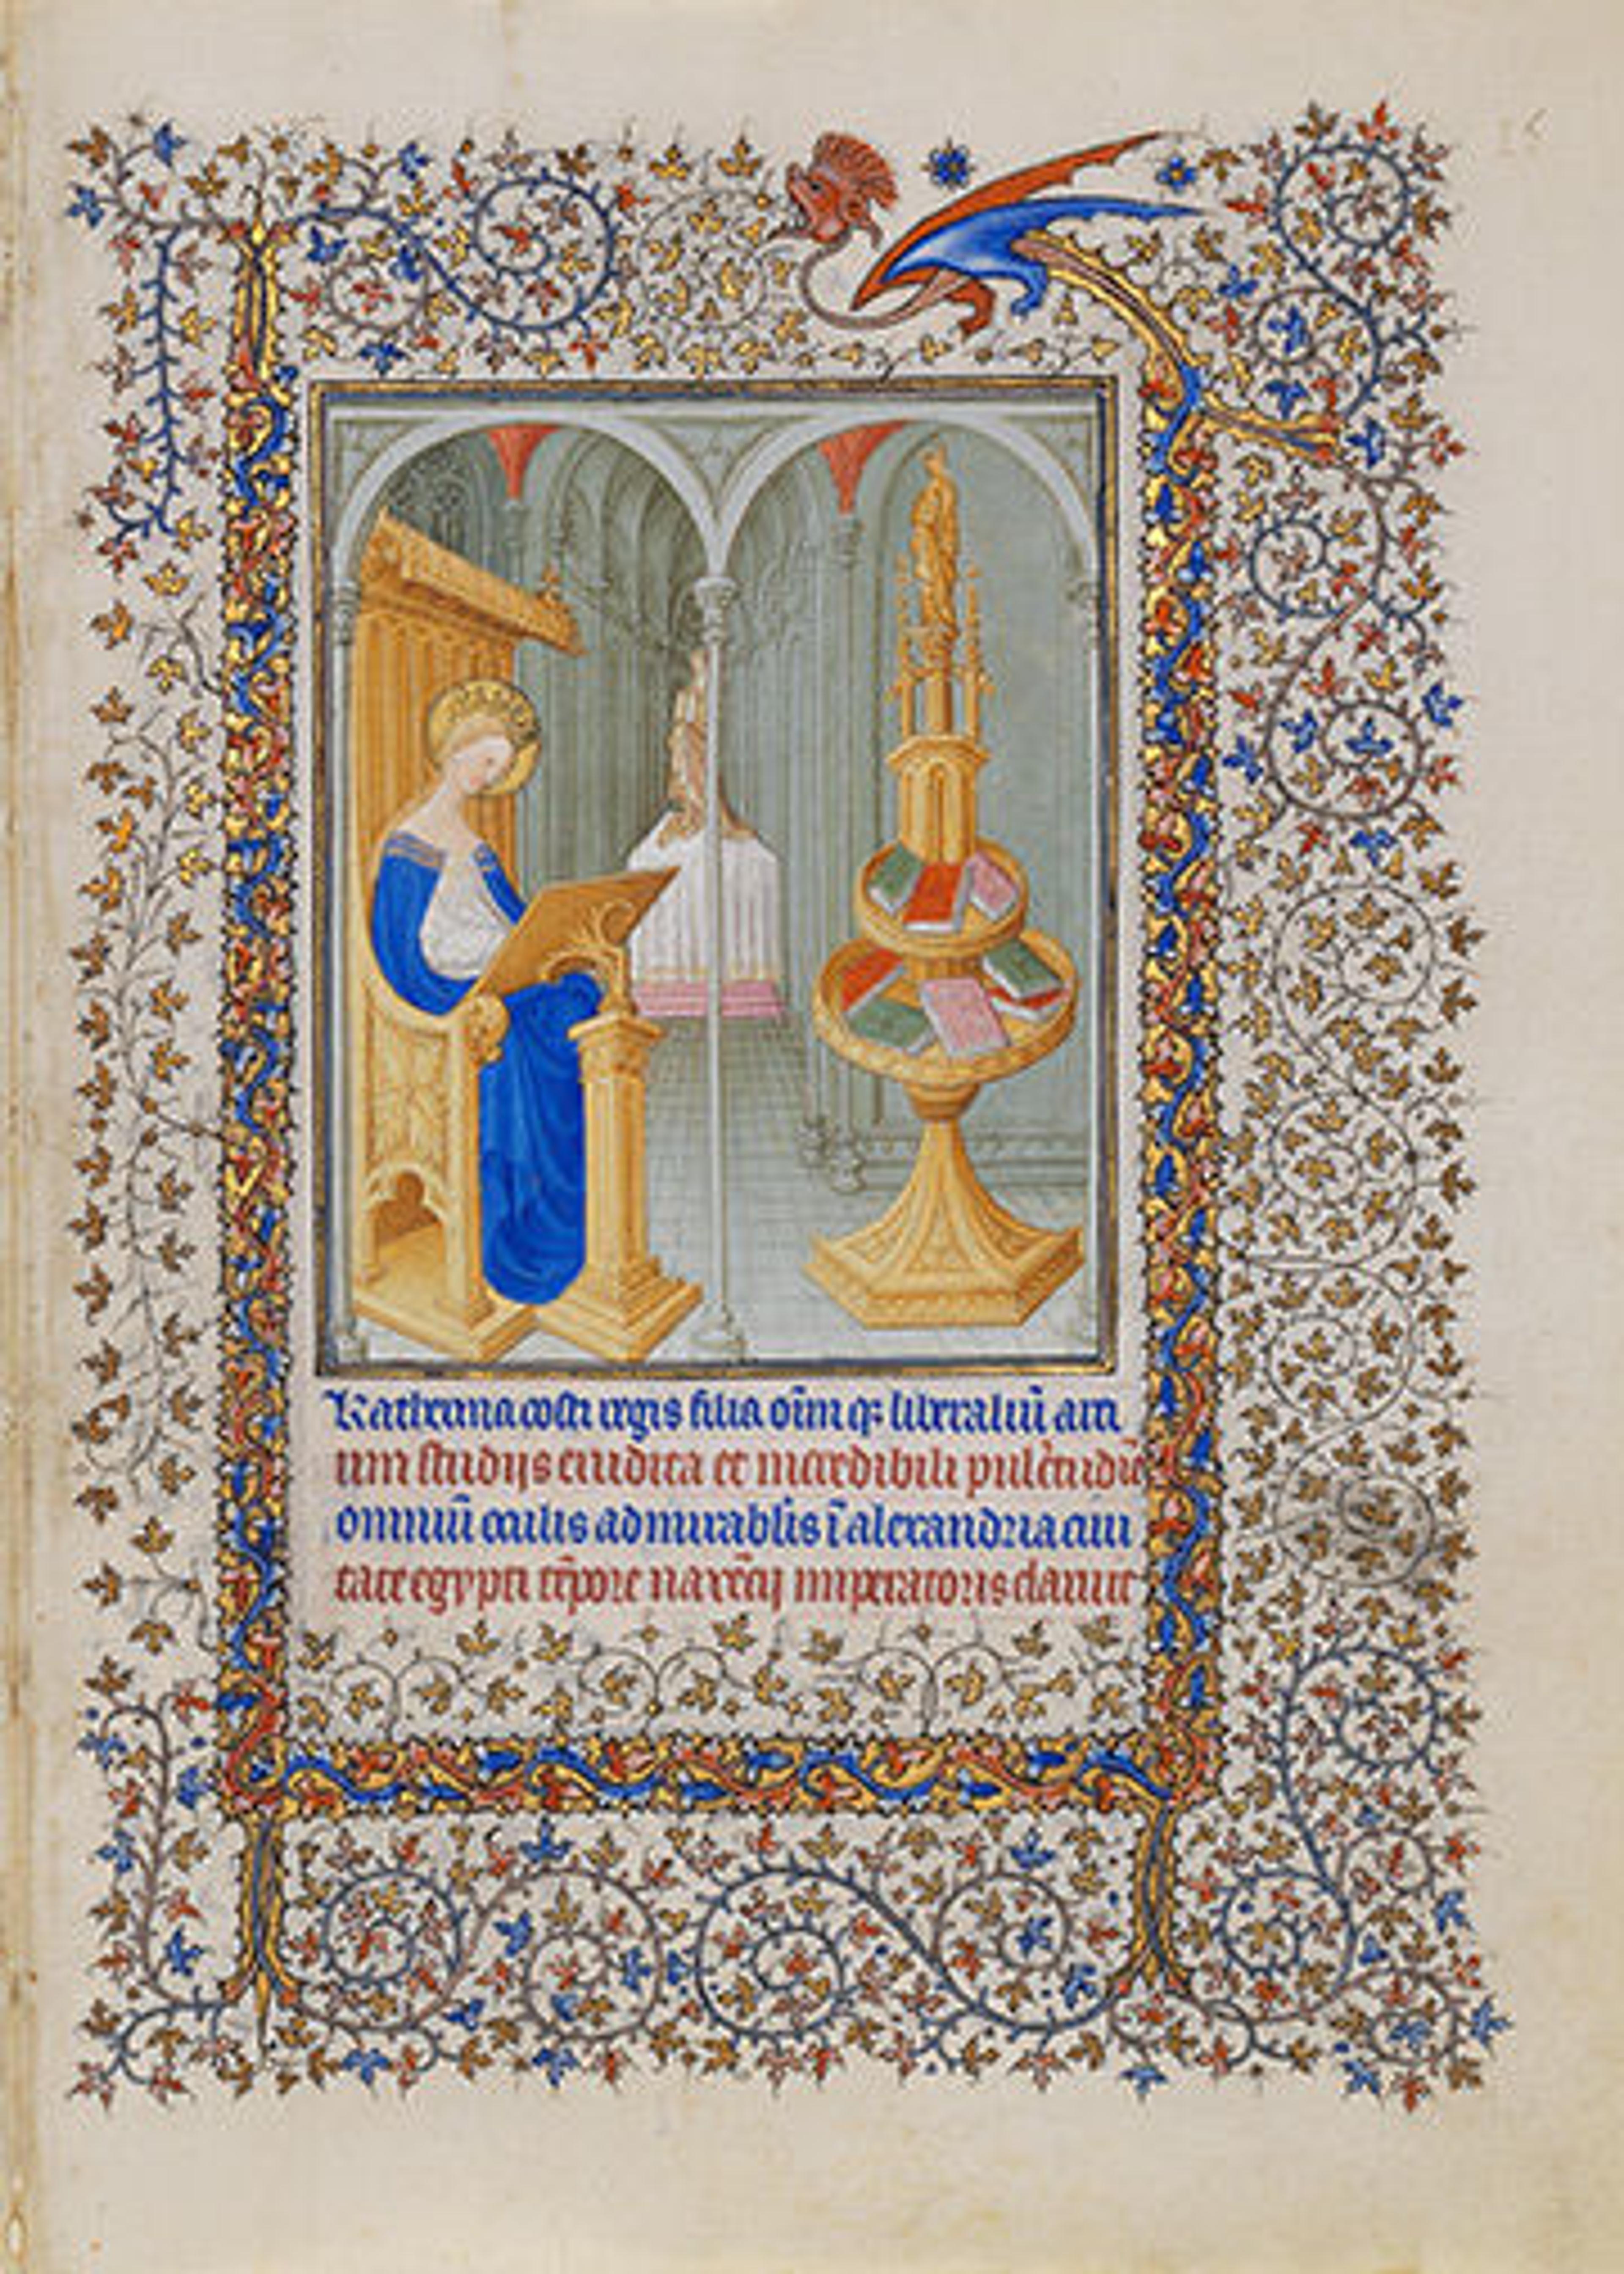 Katherina costi regis filia oīm qȝ liberaliū arti
um studijs erudita et incredibili pulcritudīe
omniū oculis admirabĺis ī alexandria ciui
tate egypti tp̄ore maxēcij imperatoris claruit